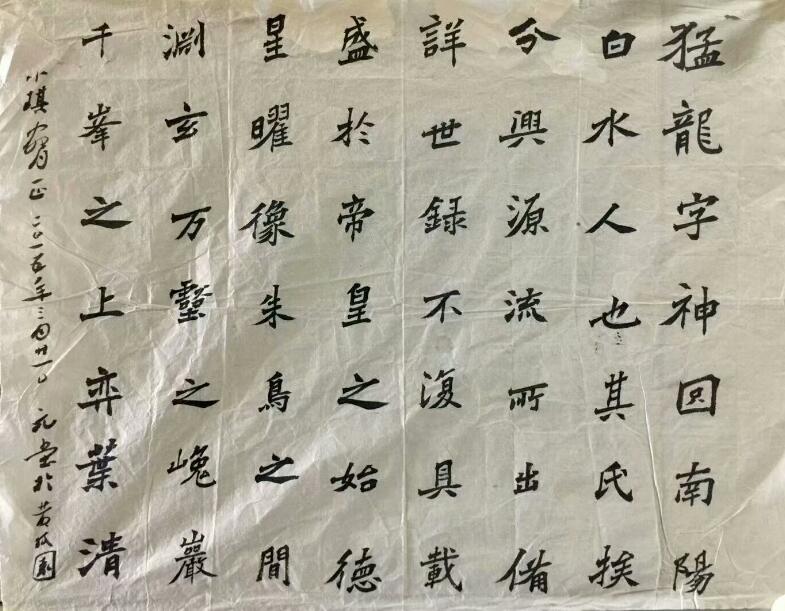 猛龍字神囧南陽
白水人也其氏族
分興源流所出備
詳世録不復具載
盛於帝皇之始德
星曜像朱鳥之間
淵玄万壑之巉巖
千峯之上弈葉清
小琪 正 二〇一五年三月廿一日 元 於黄 園